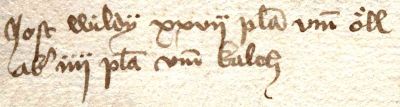 Jost wildÿ xxvij pła vm̄ öll
ab' iiij pła vm̄ kalch